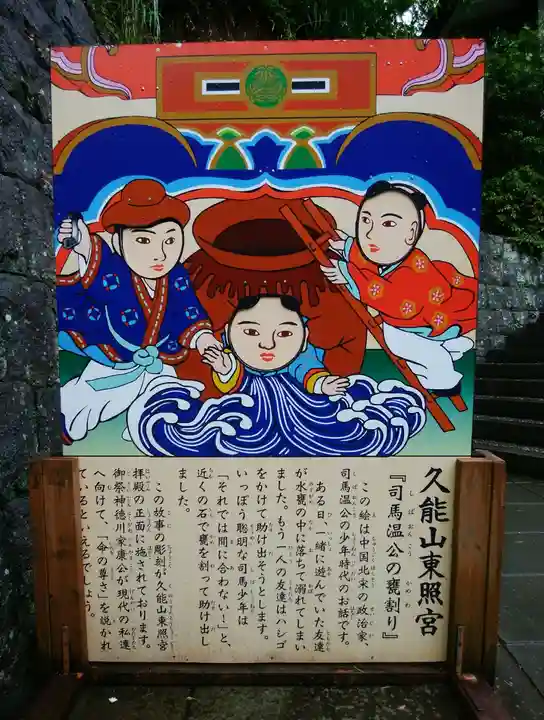 久能山東照宮
『司馬温公の甕割り』
この絵は中国北宋の政治家、
司馬温公の少年時代のお話です。
ある日、一緒に遊んでいた友達
が水甕の中に落ちて溺れてしまい
ました。もう一人の友達はハシゴ
をかけて助け出そうとします。
いっぽう聡明な司馬少年は
「それでは間に合わない！」と、
近くの石で甕を割って助け出し
ました。
この故事の彫刻が久能山東照宮
拝殿の正面に施されております。
御祭神徳川家康公が現代の私達
へ向けて、「命の尊さ」を説かれ
ているといえるでしょう。